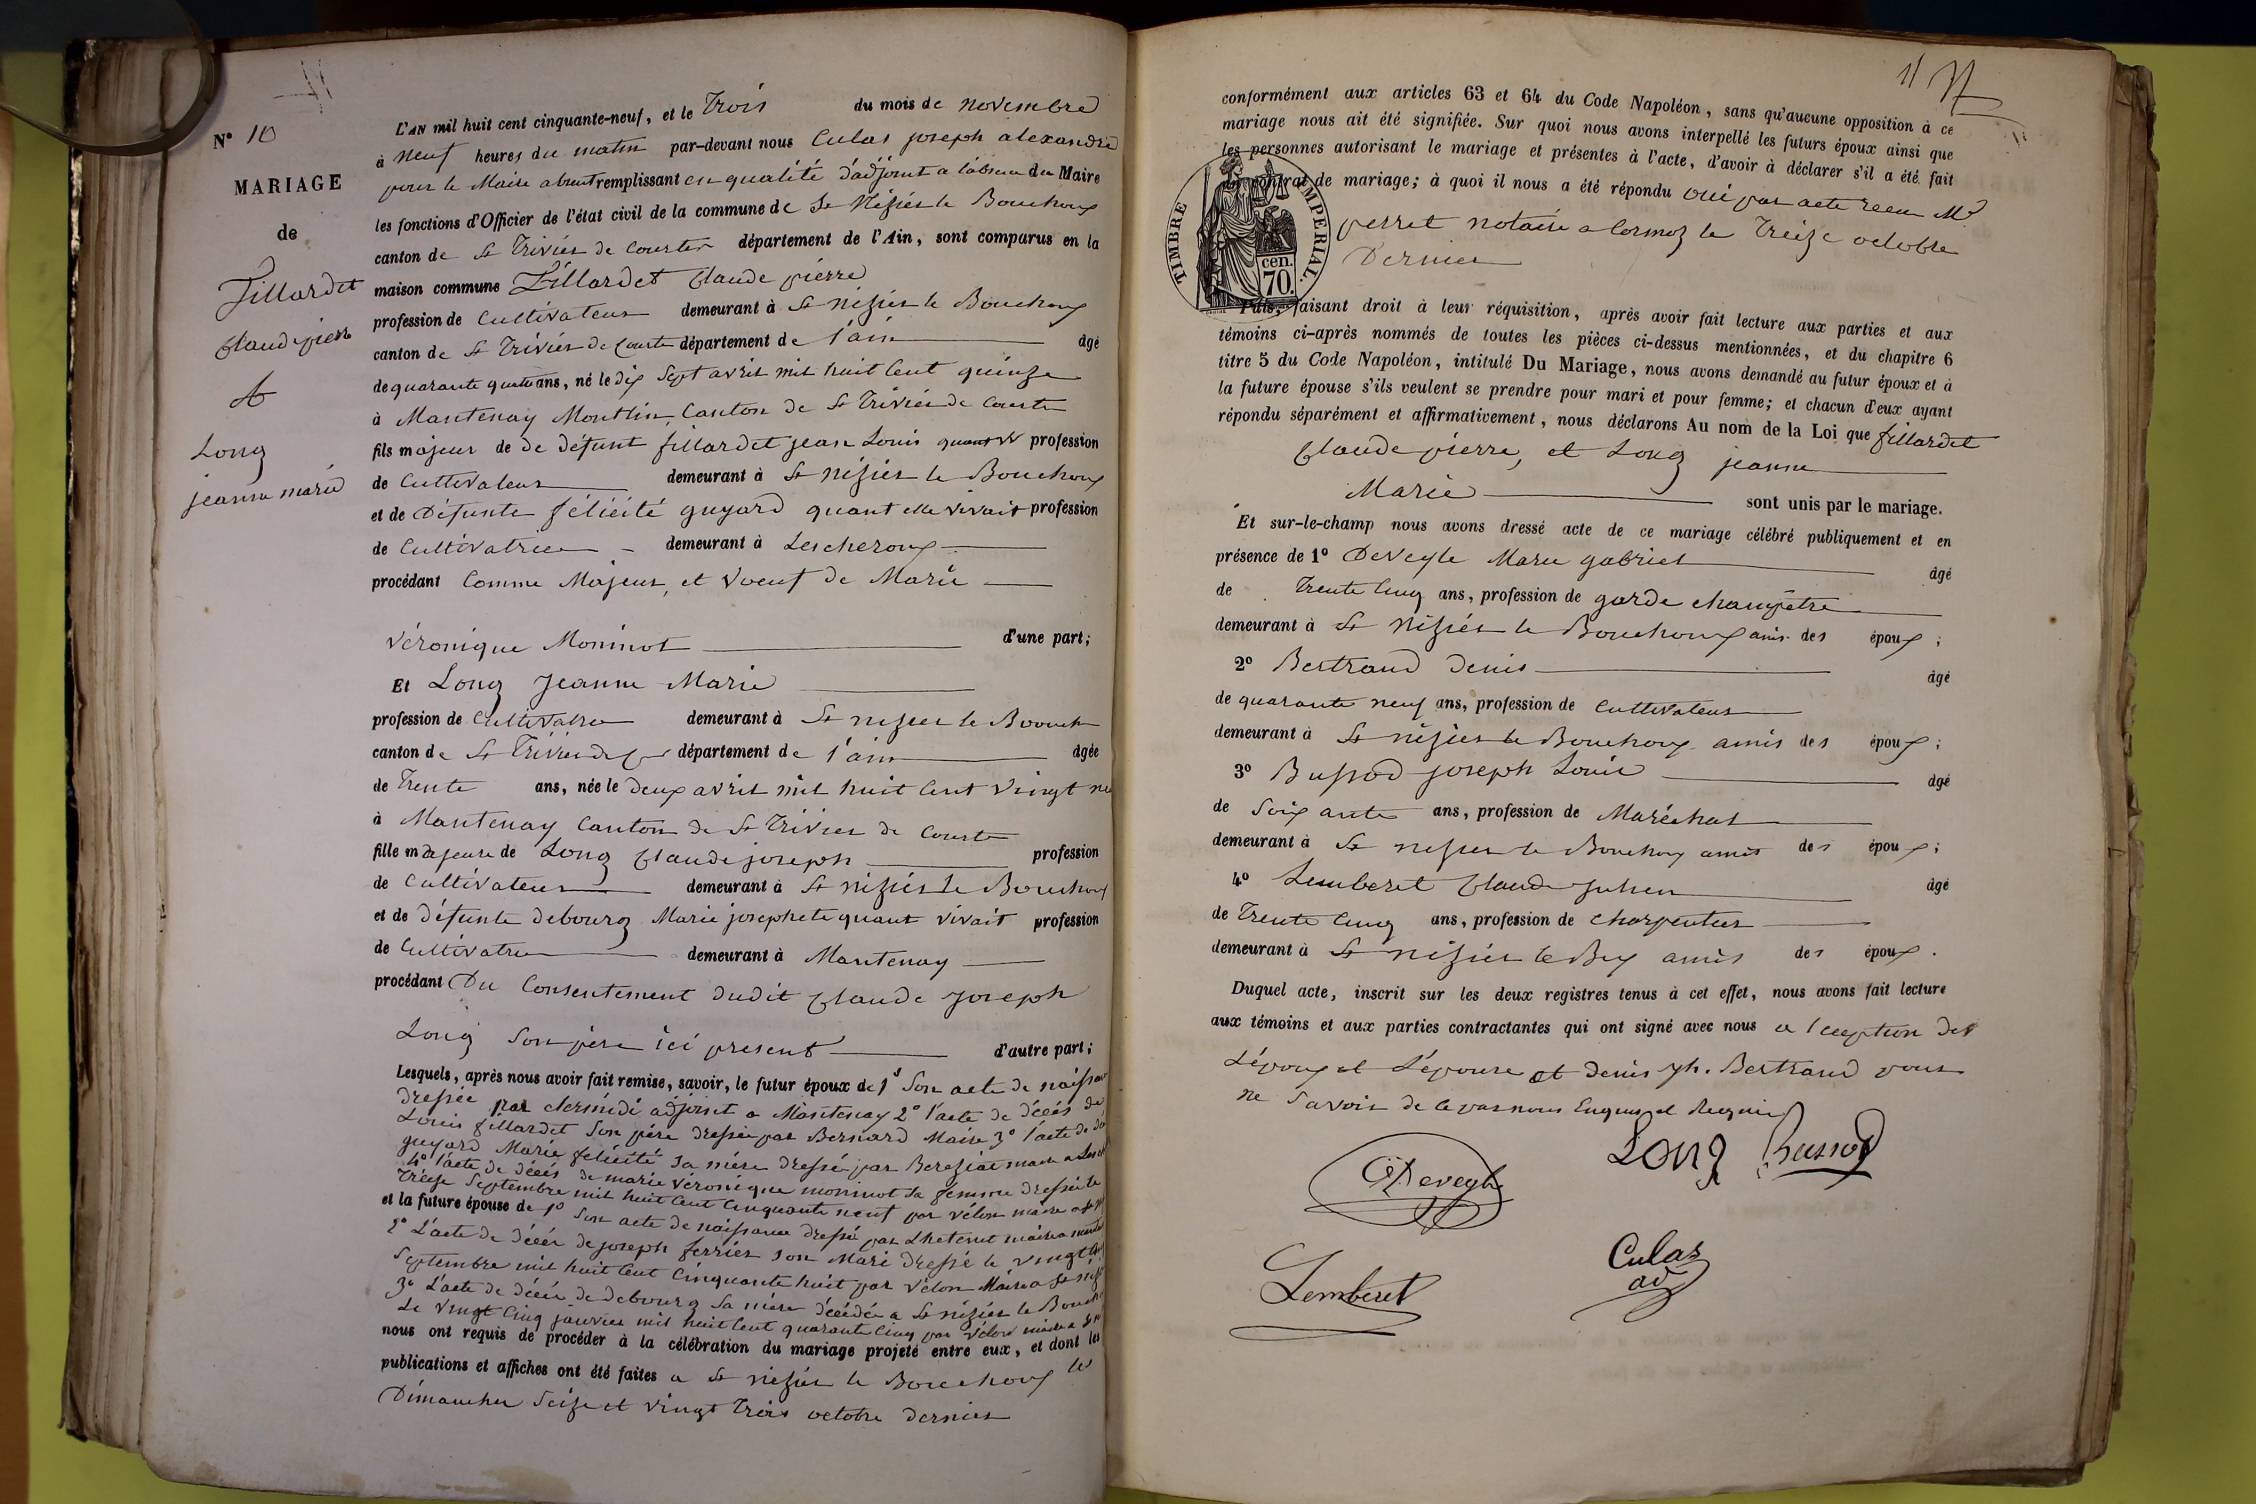 N° 10
MARIAGE
de
fillardet
Claude pierre
et
Long
jeanne marie
L'AN mil huit cent cinquante-neuf, et le Trois du mois de novembre
à neuf heures du matin par-devant nous Culas joseph alexandre
pour le Maire absent remplissant en qualité d'adjoint a l'absence du Maire
les fonctions d'Officier de l'état civil de la commune de St Nizier le Bouchoux
canton de St Trivier de Courtes département de l'Ain, sont comparus en la
maison commune fillardet Claude pierre
profession de Cultivateur demeurant à St nizier le Bouchoux
canton de St Trivier de Courte département de l'ain âgé
de quarante quatre ans, né le dix Sept avril mil huit Cent quinze
à Mantenay Montlin, Canton de St Trivier de Courte
fils majeur de de défunt fillardet jean Louis quant V profession
de Cultivateur demeurant à St nizier le Bouchoux
et de Défunte félicité guyard quant elle vivait profession
de Cultivatrice demeurant à Lescheroux
procédant Comme Majeur, et Voeuf de Marie
Véronique Moninot d'une part;
Et Long Jeanne Marie
profession de Cultivatrice demeurant à St nizier le Boouch
canton de St Trivier de C département de l'ain âgée
de Trente ans, née le deux avril mil huit Cent Vingt ne
à Mantenay Canton de St Trivier de Courte
fille majeure de Long Claude joseph profession
de Cultivateur demeurant à St nizier le Bouchoux
et de défunte debourg Marie josephete quant vivait profession
de Cultivatrice demeurant à Mantenay
procédant Du Consentement dudit Claude Joseph
Long Son père ici present d'autre part;
Lesquels, après nous avoir fait remise, savoir, le futur époux de 1° Son acte de naissan
dressée par clermidi adjoint a Mantenay 2° l'acte de décés de
Louis fillardet Son père dressée par Bernard Maire 3° l'acte de dé
guyard Marie félicité sa mère dressé par Bereziat maire a Lesch
4° l'acte de décés de marie véronique moninot sa femme dressée le
Treize Septembre mil huit Cent Cinquante neuf par vélon maire a St
et la future épouse de 1° Son acte de naissance dressé par maire a mante
2° L'acte de décés de joseph ferrier son Mari dressé le vingt
Septembre mil huit Cent Cinquante huit par Vélon Maire a St niz
3° L'acte de décés de debourg sa mère décédée a St nizier le Bouch
Le vingt Cinq janvier mil huit Cent quarante Cinq par Vélon maire a St n
nous ont requis de procéder à la célébration du mariage projeté entre eux, et dont les
publications et affiches ont été faites a St nizier le Bouchoux les
Dimanches Seize et vingt Trois octobre dernier
11
conformément aux articles 63 et 64 du Code Napoléon, sans qu'aucune opposition à ce
mariage nous ait été signifiée. Sur quoi nous avons interpellé les futurs époux ainsi que
les personnes autorisant le mariage et présentes à l'acte, d'avoir à déclarer s'il a été fait
contrat de mariage; à quoi il nous a été répondu oui par acte recu Me
perret notaire a Cormoz le Treize octobre
Dernier
TIMBRE IMPERIAL.
70. cen.
Puis, faisant droit à leur réquisition, après avoir fait lecture aux parties et aux
témoins ci-après nommés de toutes les pièces ci-dessus mentionnées, et du chapitre 6
titre 5 du Code Napoléon, intitulé Du Mariage, nous avons demandé au futur époux et à
la future épouse s'ils veulent se prendre pour mari et pour femme; et chacun d'eux ayant
répondu séparément et affirmativement, nous déclarons Au nom de la Loi que fillardet
Claude pierre, et Long jeanne
Marie sont unis par le mariage.
Et sur-le-champ nous avons dressé acte de ce mariage célébré publiquement et en
présence de 1° Deveyle Marie gabriel âgé
de Trente Cinq ans, profession de garde champêtre
demeurant à St nizier le Bouchoux amis des époux;
2° Bertrand Denis âgé
de quarante neuf ans, profession de Cultivateur
demeurant à St nizier le Bouchoux amis des époux;
3° Bussod joseph Louis âgé
de Soixante ans, profession de Maréchal
demeurant à St nizier le Bouchoux amis des époux;
4° Lemberet Claude Julien âgé
de Trente Cinq ans, profession de Charpentier
demeurant à St nizier le Bux amis des époux.
Duquel acte, inscrit sur les deux registres tenus à cet effet, nous avons fait lecture
aux témoins et aux parties contractantes qui ont signé avec nous a l'ception des
L'époux et L'épouse et denis jh. Bertrand pour
ne Savoir de ce par nous Enquis et Requis
Deveyle Long Bussod
Lemberet Culas
ad